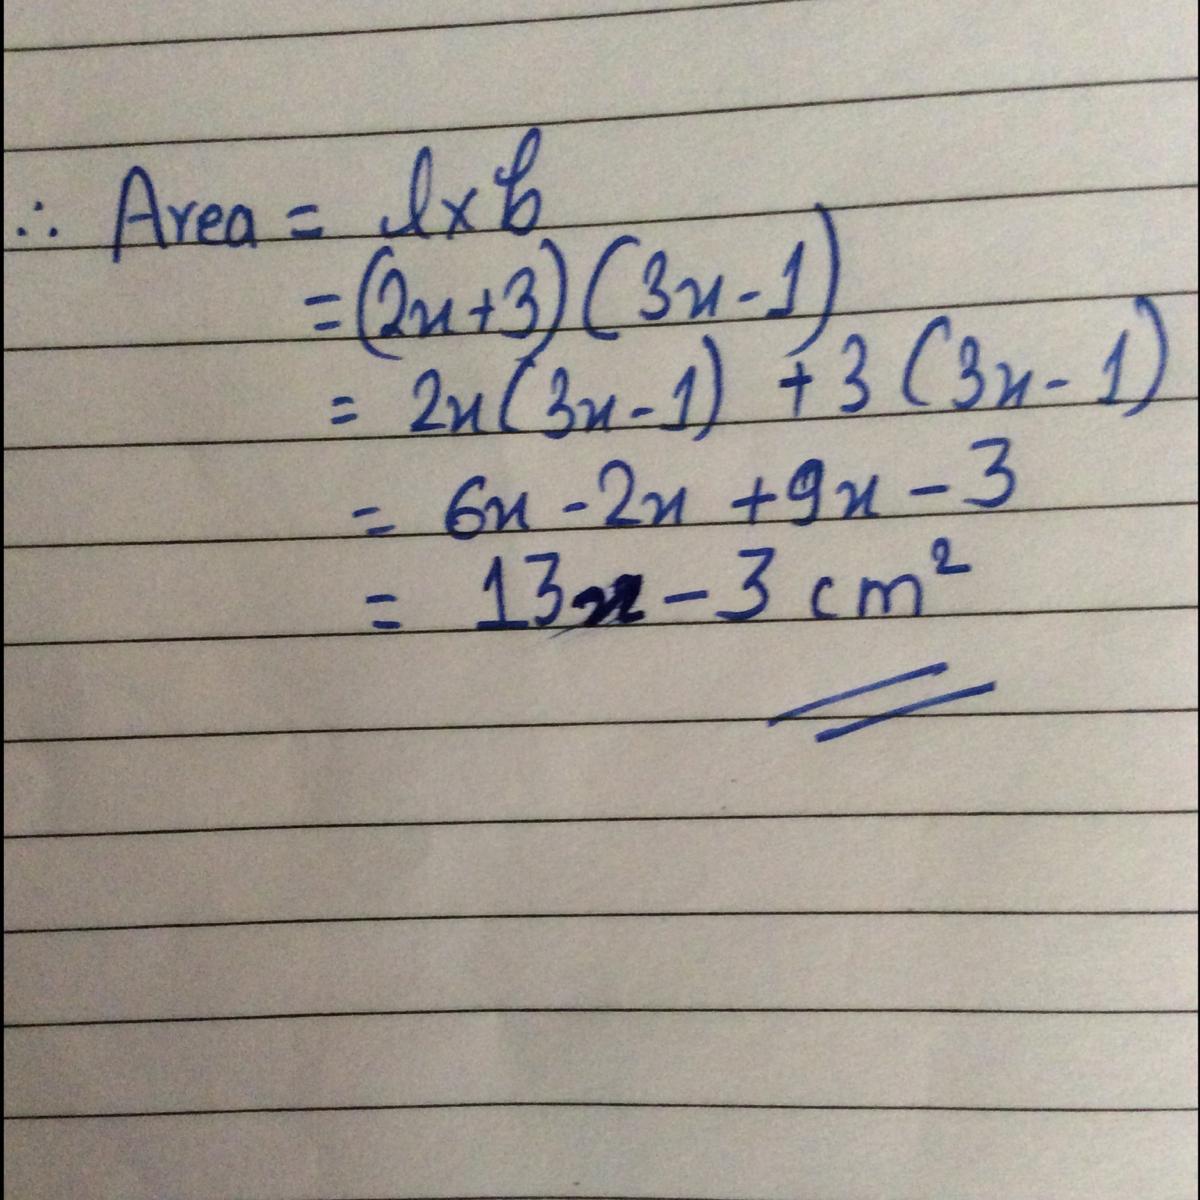 ∴ Area = l×b
=(2x+3)(3x-1)
= 2x(3x-1) +3(3x-1)
= 6x -2x +9x -3
= 13x -3 cm²